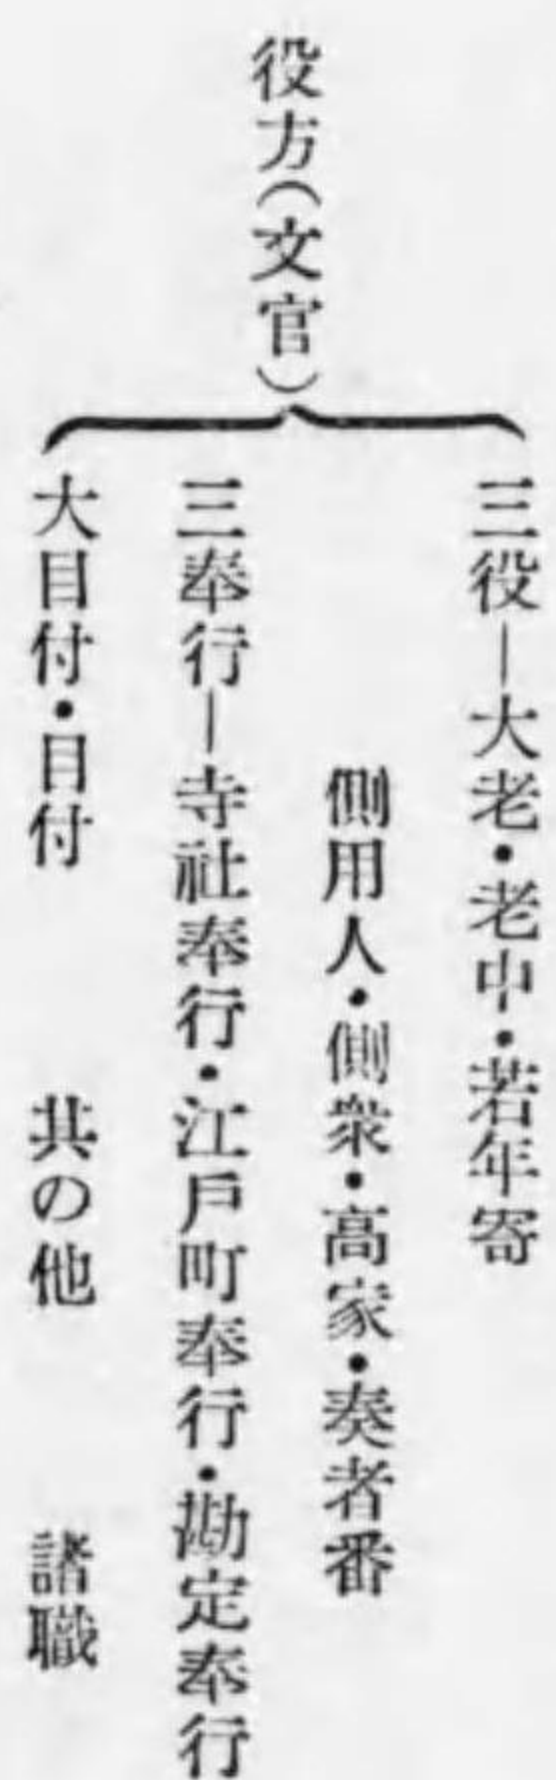 役方(文官)
三役―大老・老中・若年寄
側用人・側衆・高家・奏者番
三奉行―寺社奉行・江戸町奉行・勘定奉行
大目付・目付 其の他 諸職